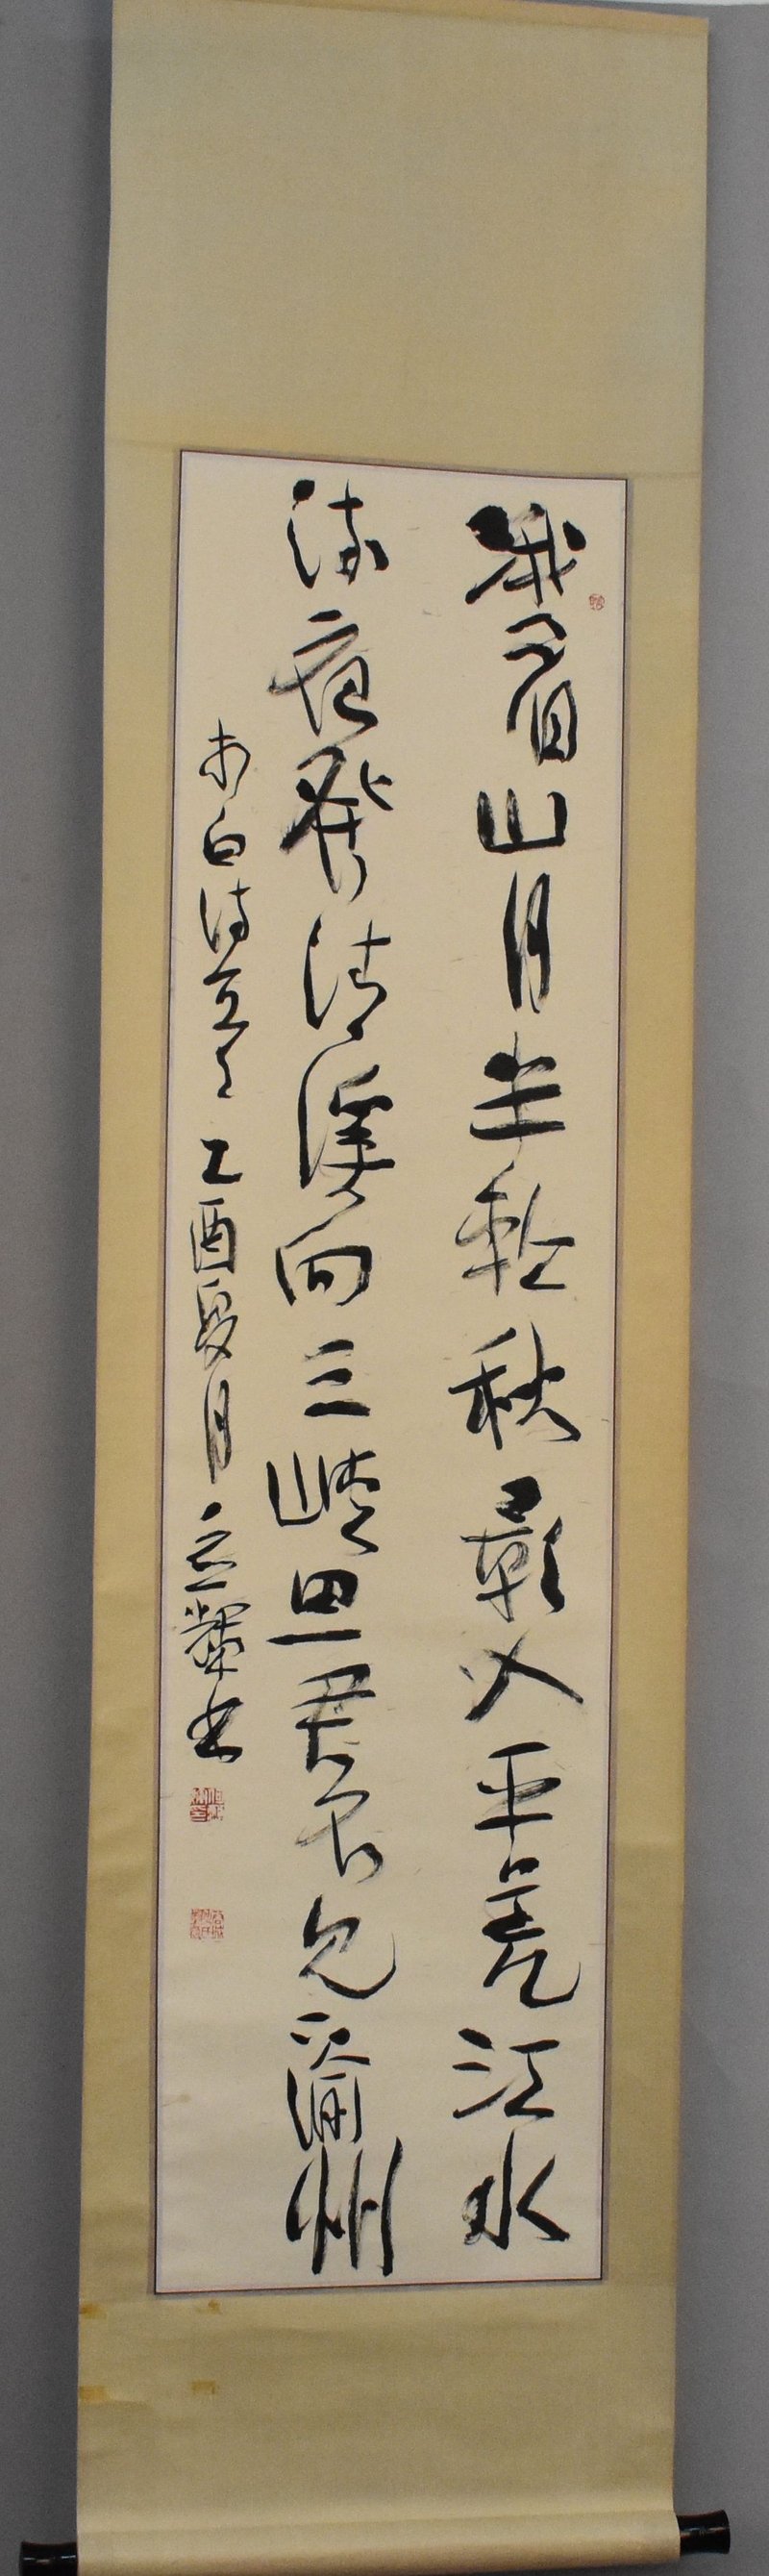 峨眉山月半輪秋影入平羌江水
流夜發清溪向三峽思君不見下渝州
李白詩 乙酉夏月 書